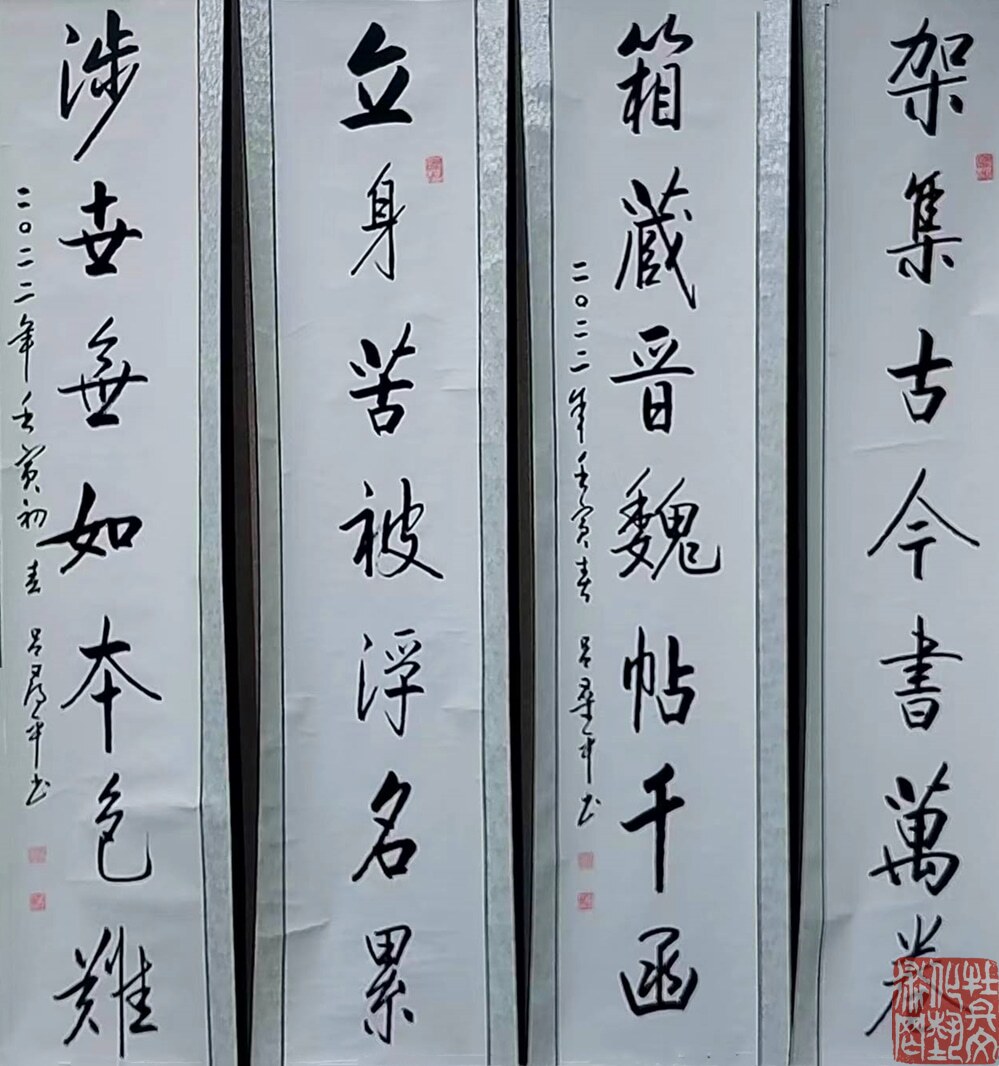 架集古今書萬卷
箱蔵晋魏帖千函
二〇二二年壬寅春 吕
立身苦被浮名累
涉世無如本色難
二〇二二年壬寅初春 吕